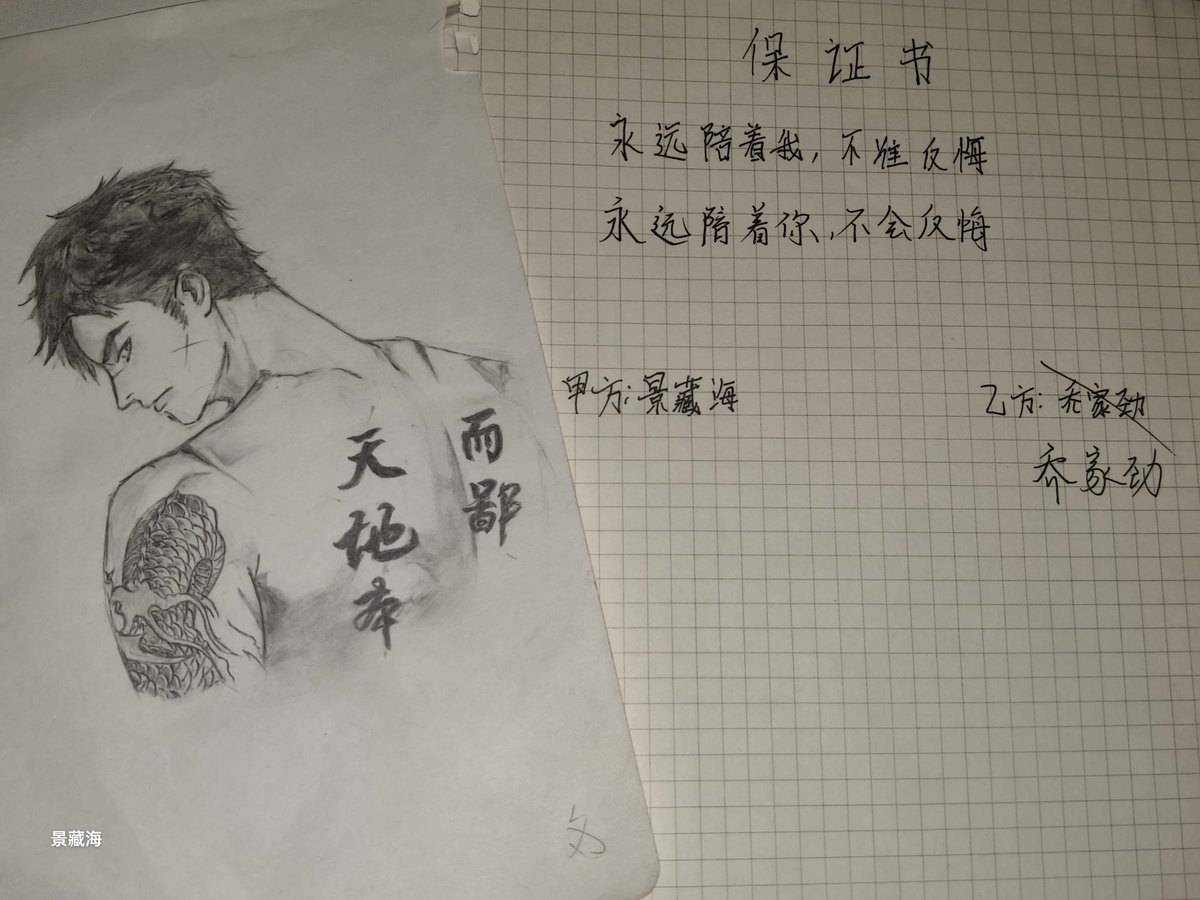 保证书
永远陪着我，不准反悔
永远陪着你，不会反悔
甲方：景藏海
乙方：乔家劲
乔家劲
而鄙
天地本
文
景藏海